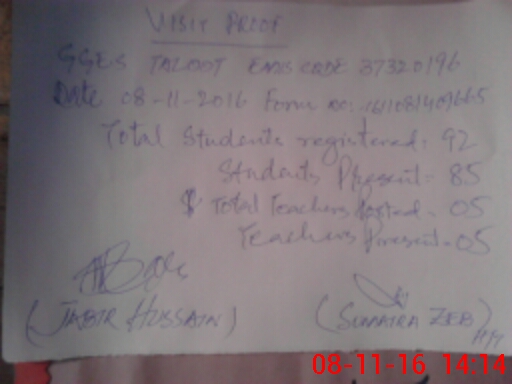 VISIT PROOF
GGES TALOOT EMIS CODE 37320196
Date 08-11-2016 Form no:
Total Students registered: 92
Students Present- 85
Total Teachers Posted- 05
Teachers Present- 05
(JABIR HUSSAIN) (SUMAIRA ZEB)
08-11-16 14:14